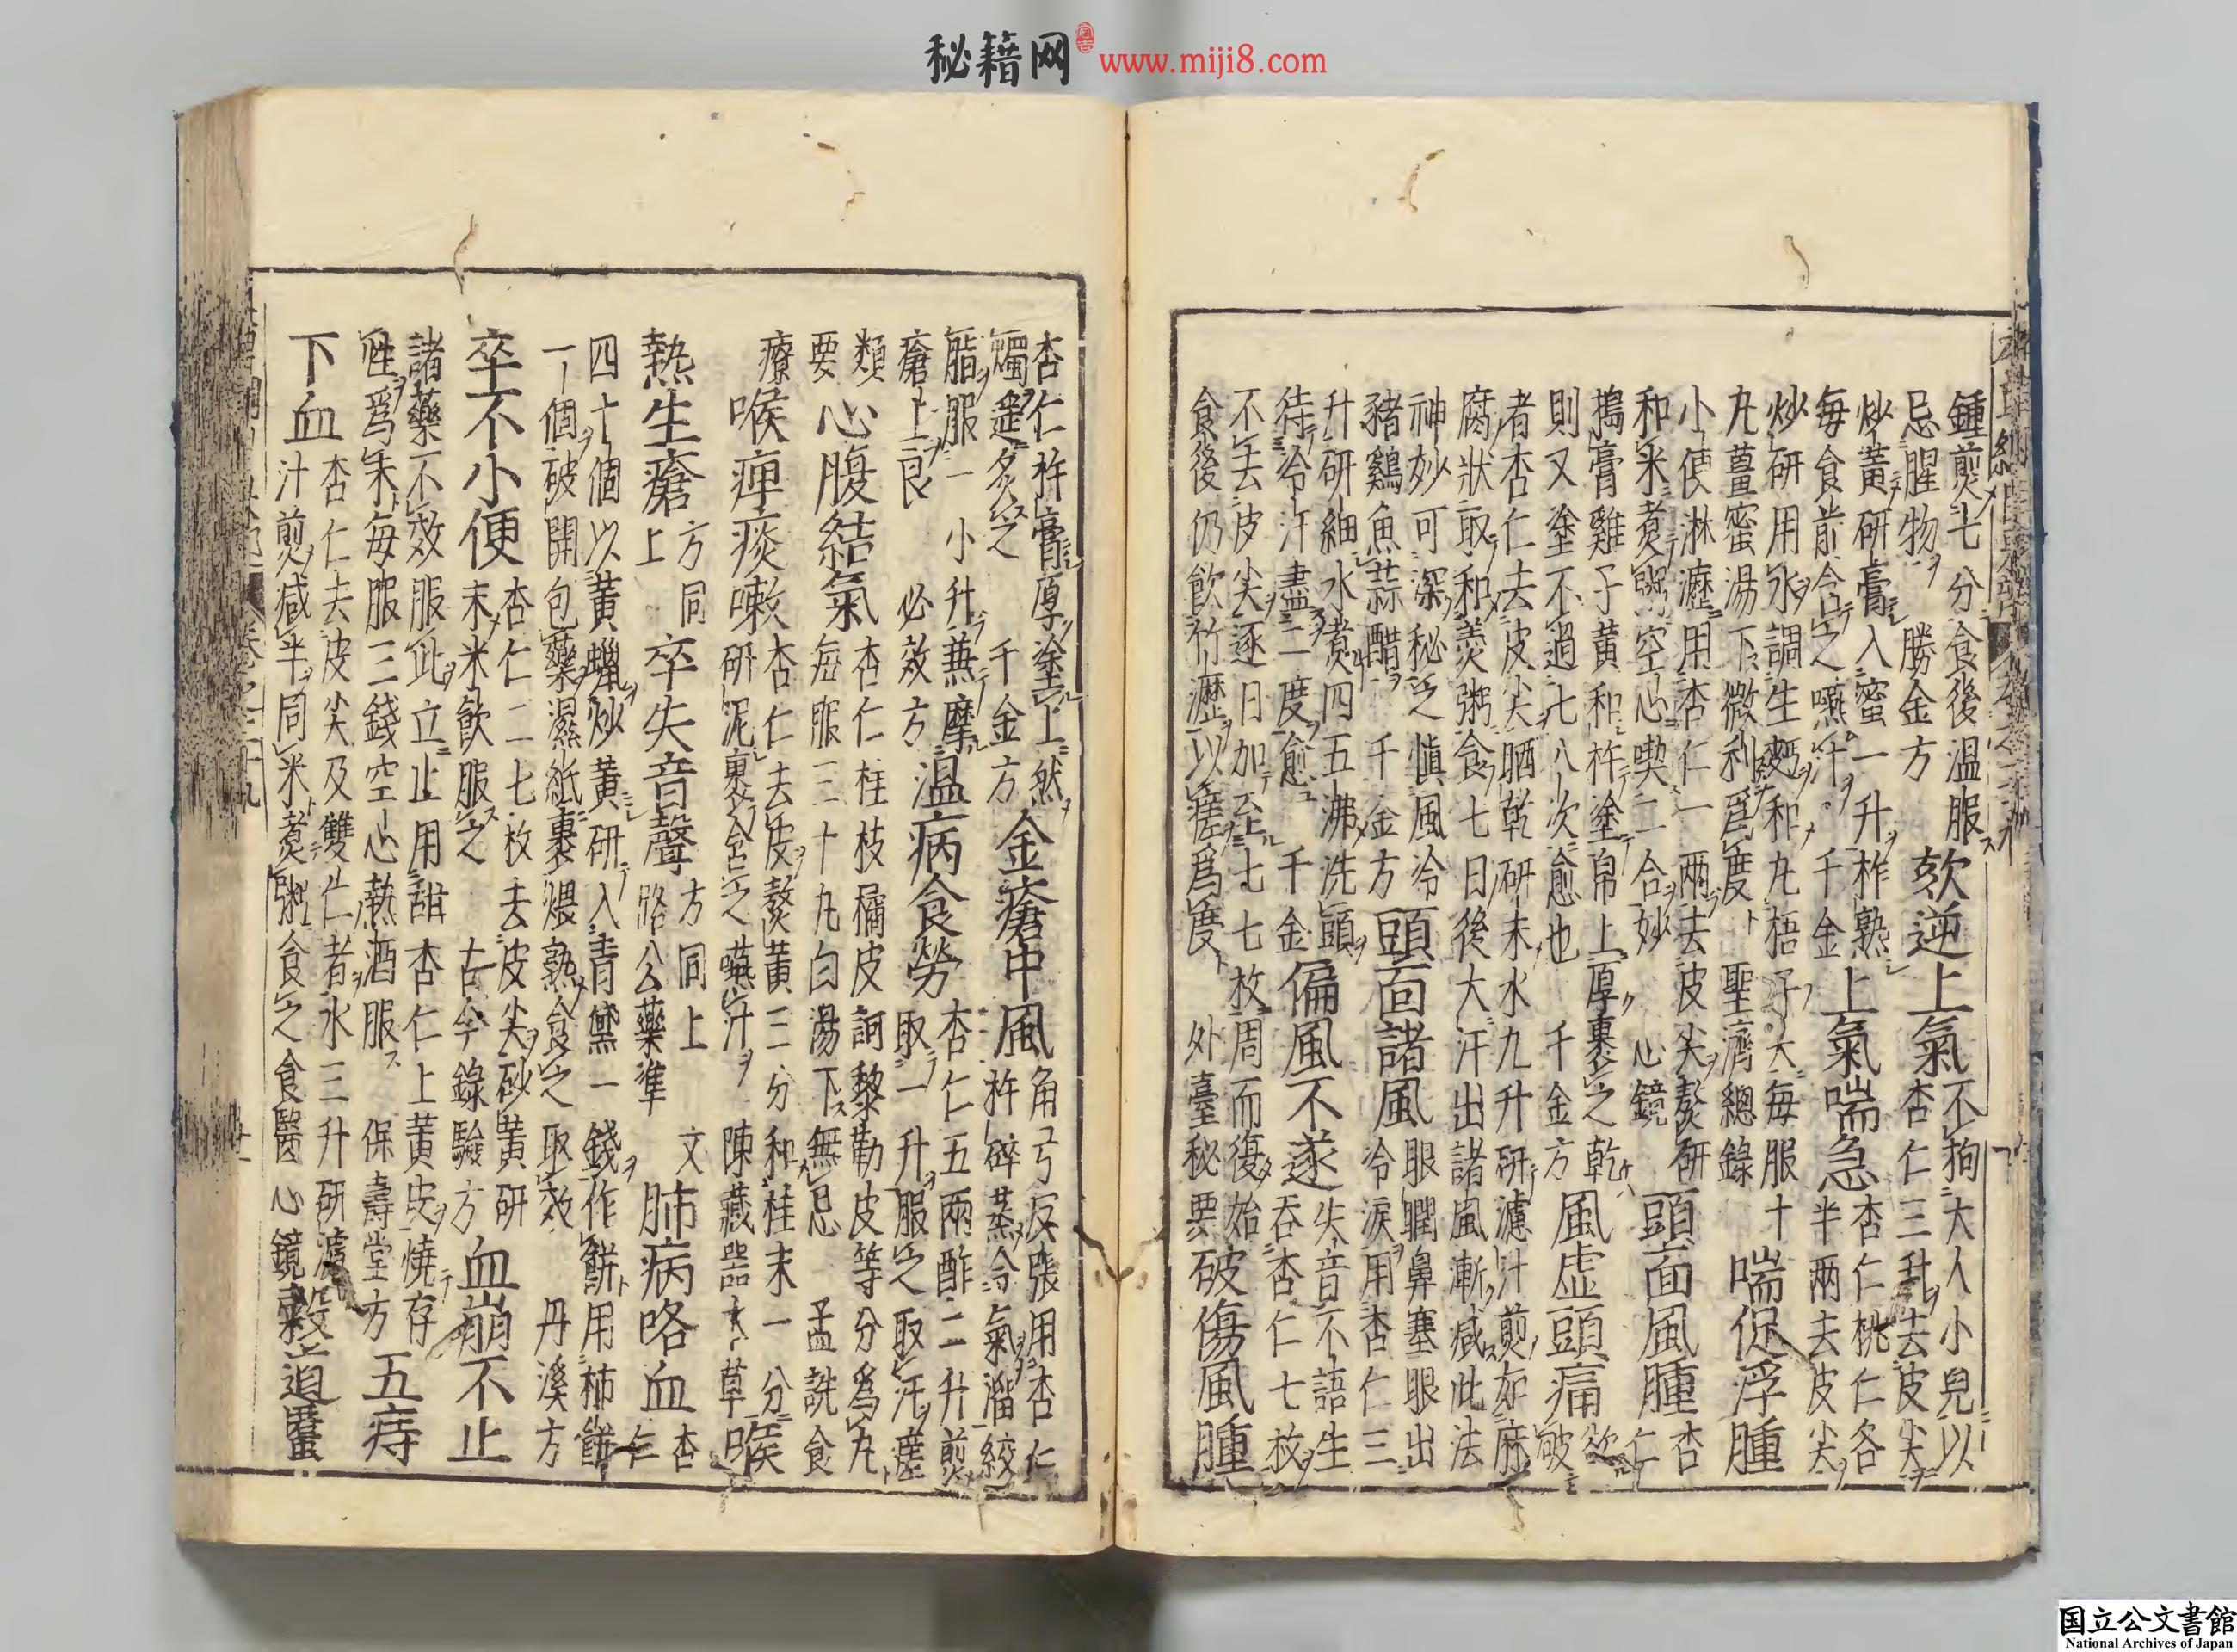 秘籍网 www.miji8.com
鍾煎七分食後溫服
忌腥物 勝金方
欬逆上氣
不拘大人小兒以
杏仁三升去皮尖
炒黃研膏入蜜一升杵熟
每食前含之嚥汁。千金
上氣喘急
杏仁桃仁各
半兩去皮尖
炒研用水調生麪和丸梧子大每服十
丸薑蜜湯下微利爲度 聖濟總錄
喘促浮腫
小便淋瀝用杏仁一兩去皮尖熬研
和米煮粥空心喫二合妙 心鏡
頭面風腫
杏
仁
搗膏雞子黃和杵塗帛上厚裹之乾
則又塗不過七八次愈也 千金方
風虛頭痛
欲
破
者杏仁去皮尖晒乾研末水九升研濾汁煎如麻
腐狀取和羹粥食七日後大汗出諸風漸減此法
神妙可深秘之慎風冷
豬雞魚蒜醋 千金方
頭面諸風
眼瞤鼻塞眼出
冷淚用杏仁三
升研細水煮四五沸洗頭
待冷汗盡三度愈 千金
偏風不遂
失音不語生
吞杏仁七枚
不去皮尖逐日加至七七枚周而復始
食後仍飲竹瀝以瘥爲度 外臺秘要
破傷風腫
杏仁杵膏厚塗上然
燭遥炙之 千金方
金瘡中風
角弓反張用杏仁
杵碎蒸令氣溜絞
脂服一小升兼摩
瘡上良 必效方
溫病食勞
杏仁五兩酢二升煎
取一升服之取汗瘥
類
要
心腹結氣
杏仁桂枝橘皮訶黎勒皮等分爲丸
每服三十丸白湯下無忌 孟詵食
療
喉痺痰嗽
杏仁去皮熬黃三分和桂末一分
研泥裹含之嚥汁 陳藏器本草
喉
熱生瘡
方同
上
卒失音聲
方同上 文
路公藥準
肺病咯血
杏
仁
四十個以黃蠟炒黃研入青黛一錢作餅用柿餅
一個破開包藥濕紙裹煨熟食之取效 丹溪方
卒不小便
杏仁二七枚去皮尖炒黃研
末米飲服之 古今錄驗方
血崩不止
諸藥不效服此立止用甜杏仁上黃皮燒存
性爲末每服三錢空心熱酒服 保壽堂方
五痔
下血
杏仁去皮尖及雙仁者水三升研濾
汁煎減半同米煮粥食之 食醫心鏡
穀道䘌
国立公文書館
National Archives of Japan